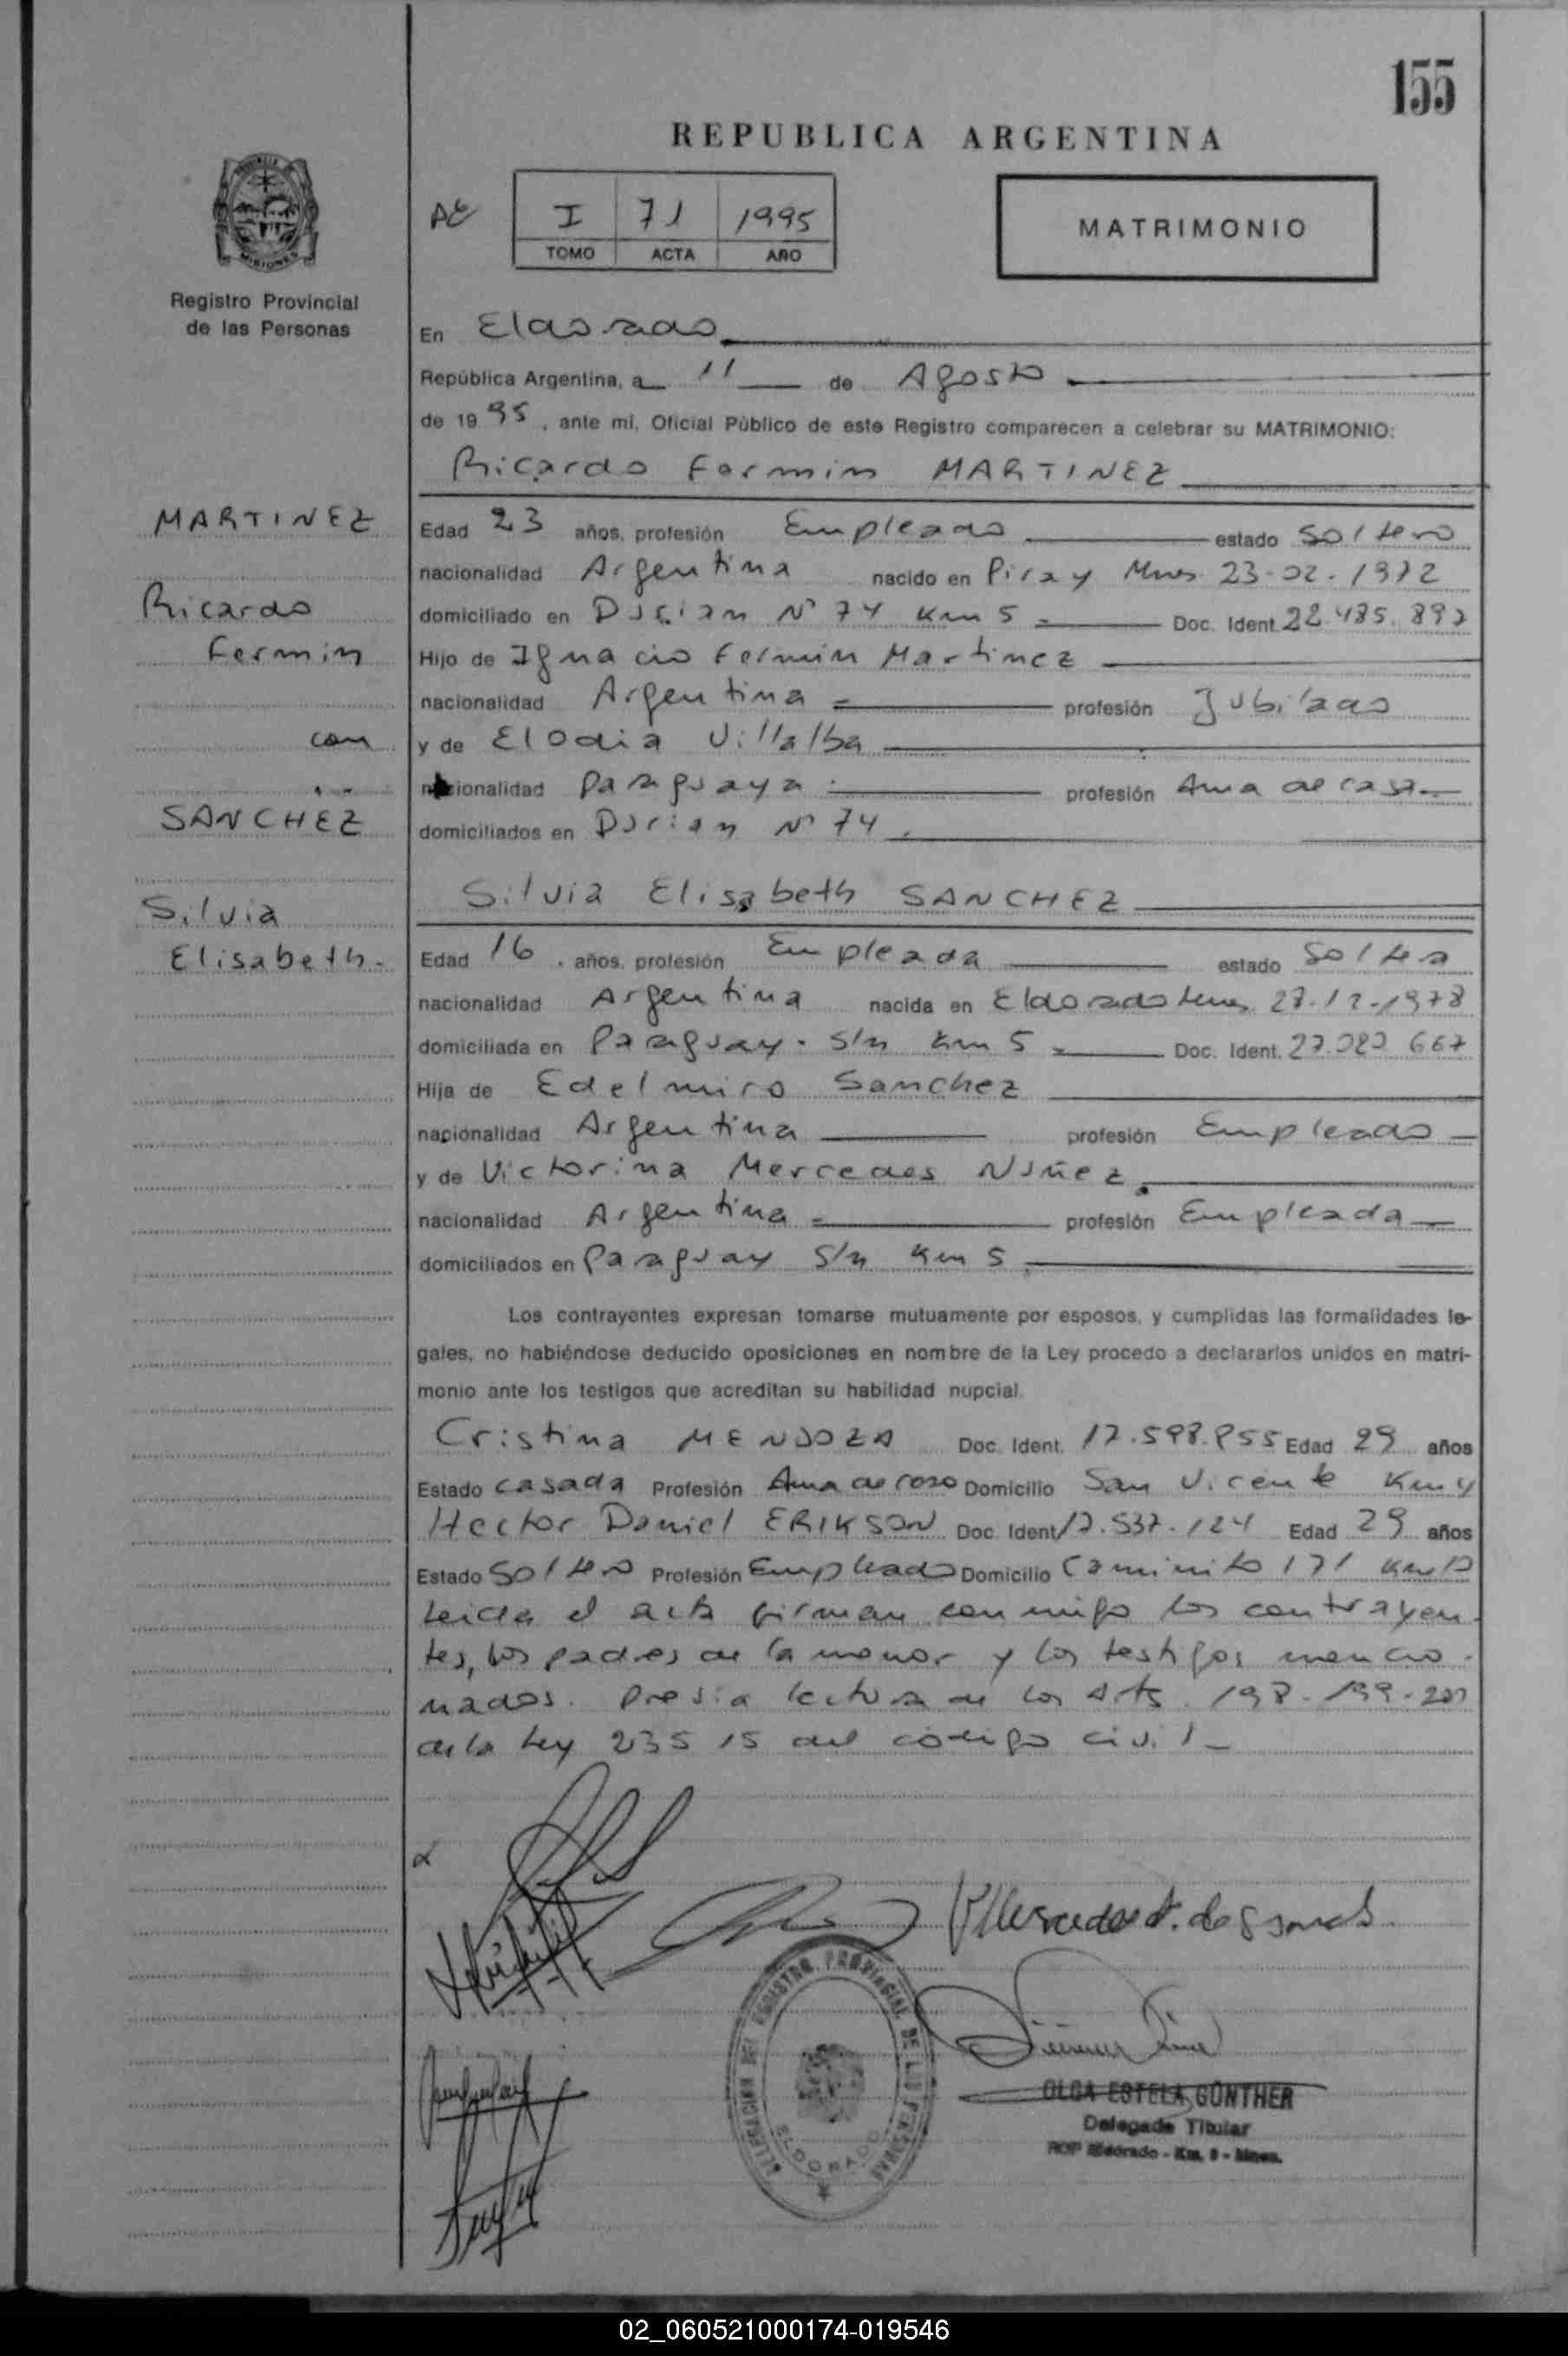 155
REPUBLICA ARGENTINA
MISIONES
Registro Provincial
de las Personas
I 71 1995
TOMO ACTA AÑO
MATRIMONIO
En Eldorado
República Argentina, a 11 de Agosto
de 1995, ante mi, Oficial Público de este Registro comparecen a celebrar su MATRIMONIO:
Ricardo Fermin MARTINEZ
MARTINEZ
Ricardo
Fermin
con
SANCHEZ
Silvia
Elisabeth.
Edad 23 años, profesión Empleado estado Soltero
nacionalidad Argentina nacido en Piray Mnes 23-02-1972
domiciliado en N° 74 Km 5 Doc. Ident. 22.485.
Hijo de Ignacio Fermin Martinez
nacionalidad Argentina profesión Jubilado
y de Elodia Villalba
nacionalidad Paraguaya profesión Ama de casa
domiciliados en N° 74
Silvia Elisabeth SANCHEZ
Edad 16, años, profesión Empleada estado Soltera
nacionalidad Argentina nacida en Eldorado 27-12-1978
domiciliada en Paraguay. S/n Km 5 Doc. Ident. 667
Hija de Edelmiro Sanchez
nacionalidad Argentina profesión Empleado
y de Victorina Mercedes Nuñez
nacionalidad Argentina profesión Empleada
domiciliados en Paraguay S/n Km 5
Los contrayentes expresan tomarse mutuamente por esposos, y cumplidas las formalidades le-
gales, no habiéndose deducido oposiciones en nombre de la Ley procedo a declararlos unidos en matri-
monio ante los testigos que acreditan su habilidad nupcial.
Cristina MENDOZA Doc. Ident. Edad 29 años
Estado Casada Profesión Ama de casa Domicilio San Vicente Km 4
Hector Daniel ERIKSON Doc. Ident. 17.537.124 Edad 29 años
Estado Soltero Profesión Empleado Domicilio Caminito 171
Leida el acta firman conmigo los contrayen-
tes, los padres de la menor y los testigos mencio-
nados. Previa lectura de los Arts. 198-199-200
de la Ley 23515 del código civil
DELEGACION DEL REGISTRO PROVINCIAL DE LAS PERSONAS
ELDORADO
OLGA ESTELA GÜNTHER
Delegada Titular
Eldorado - Km. 9 - Mnes.
02_060521000174-019546